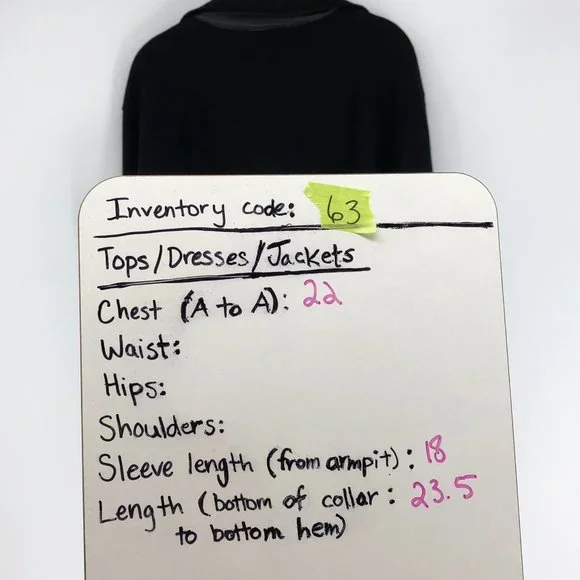 Inventory code: 63
Tops/Dresses/Jackets
Chest (A to A): 22
Waist:
Hips:
Shoulders:
Sleeve length (from armpit): 18
Length (bottom of collar: 23.5
to bottom hem)